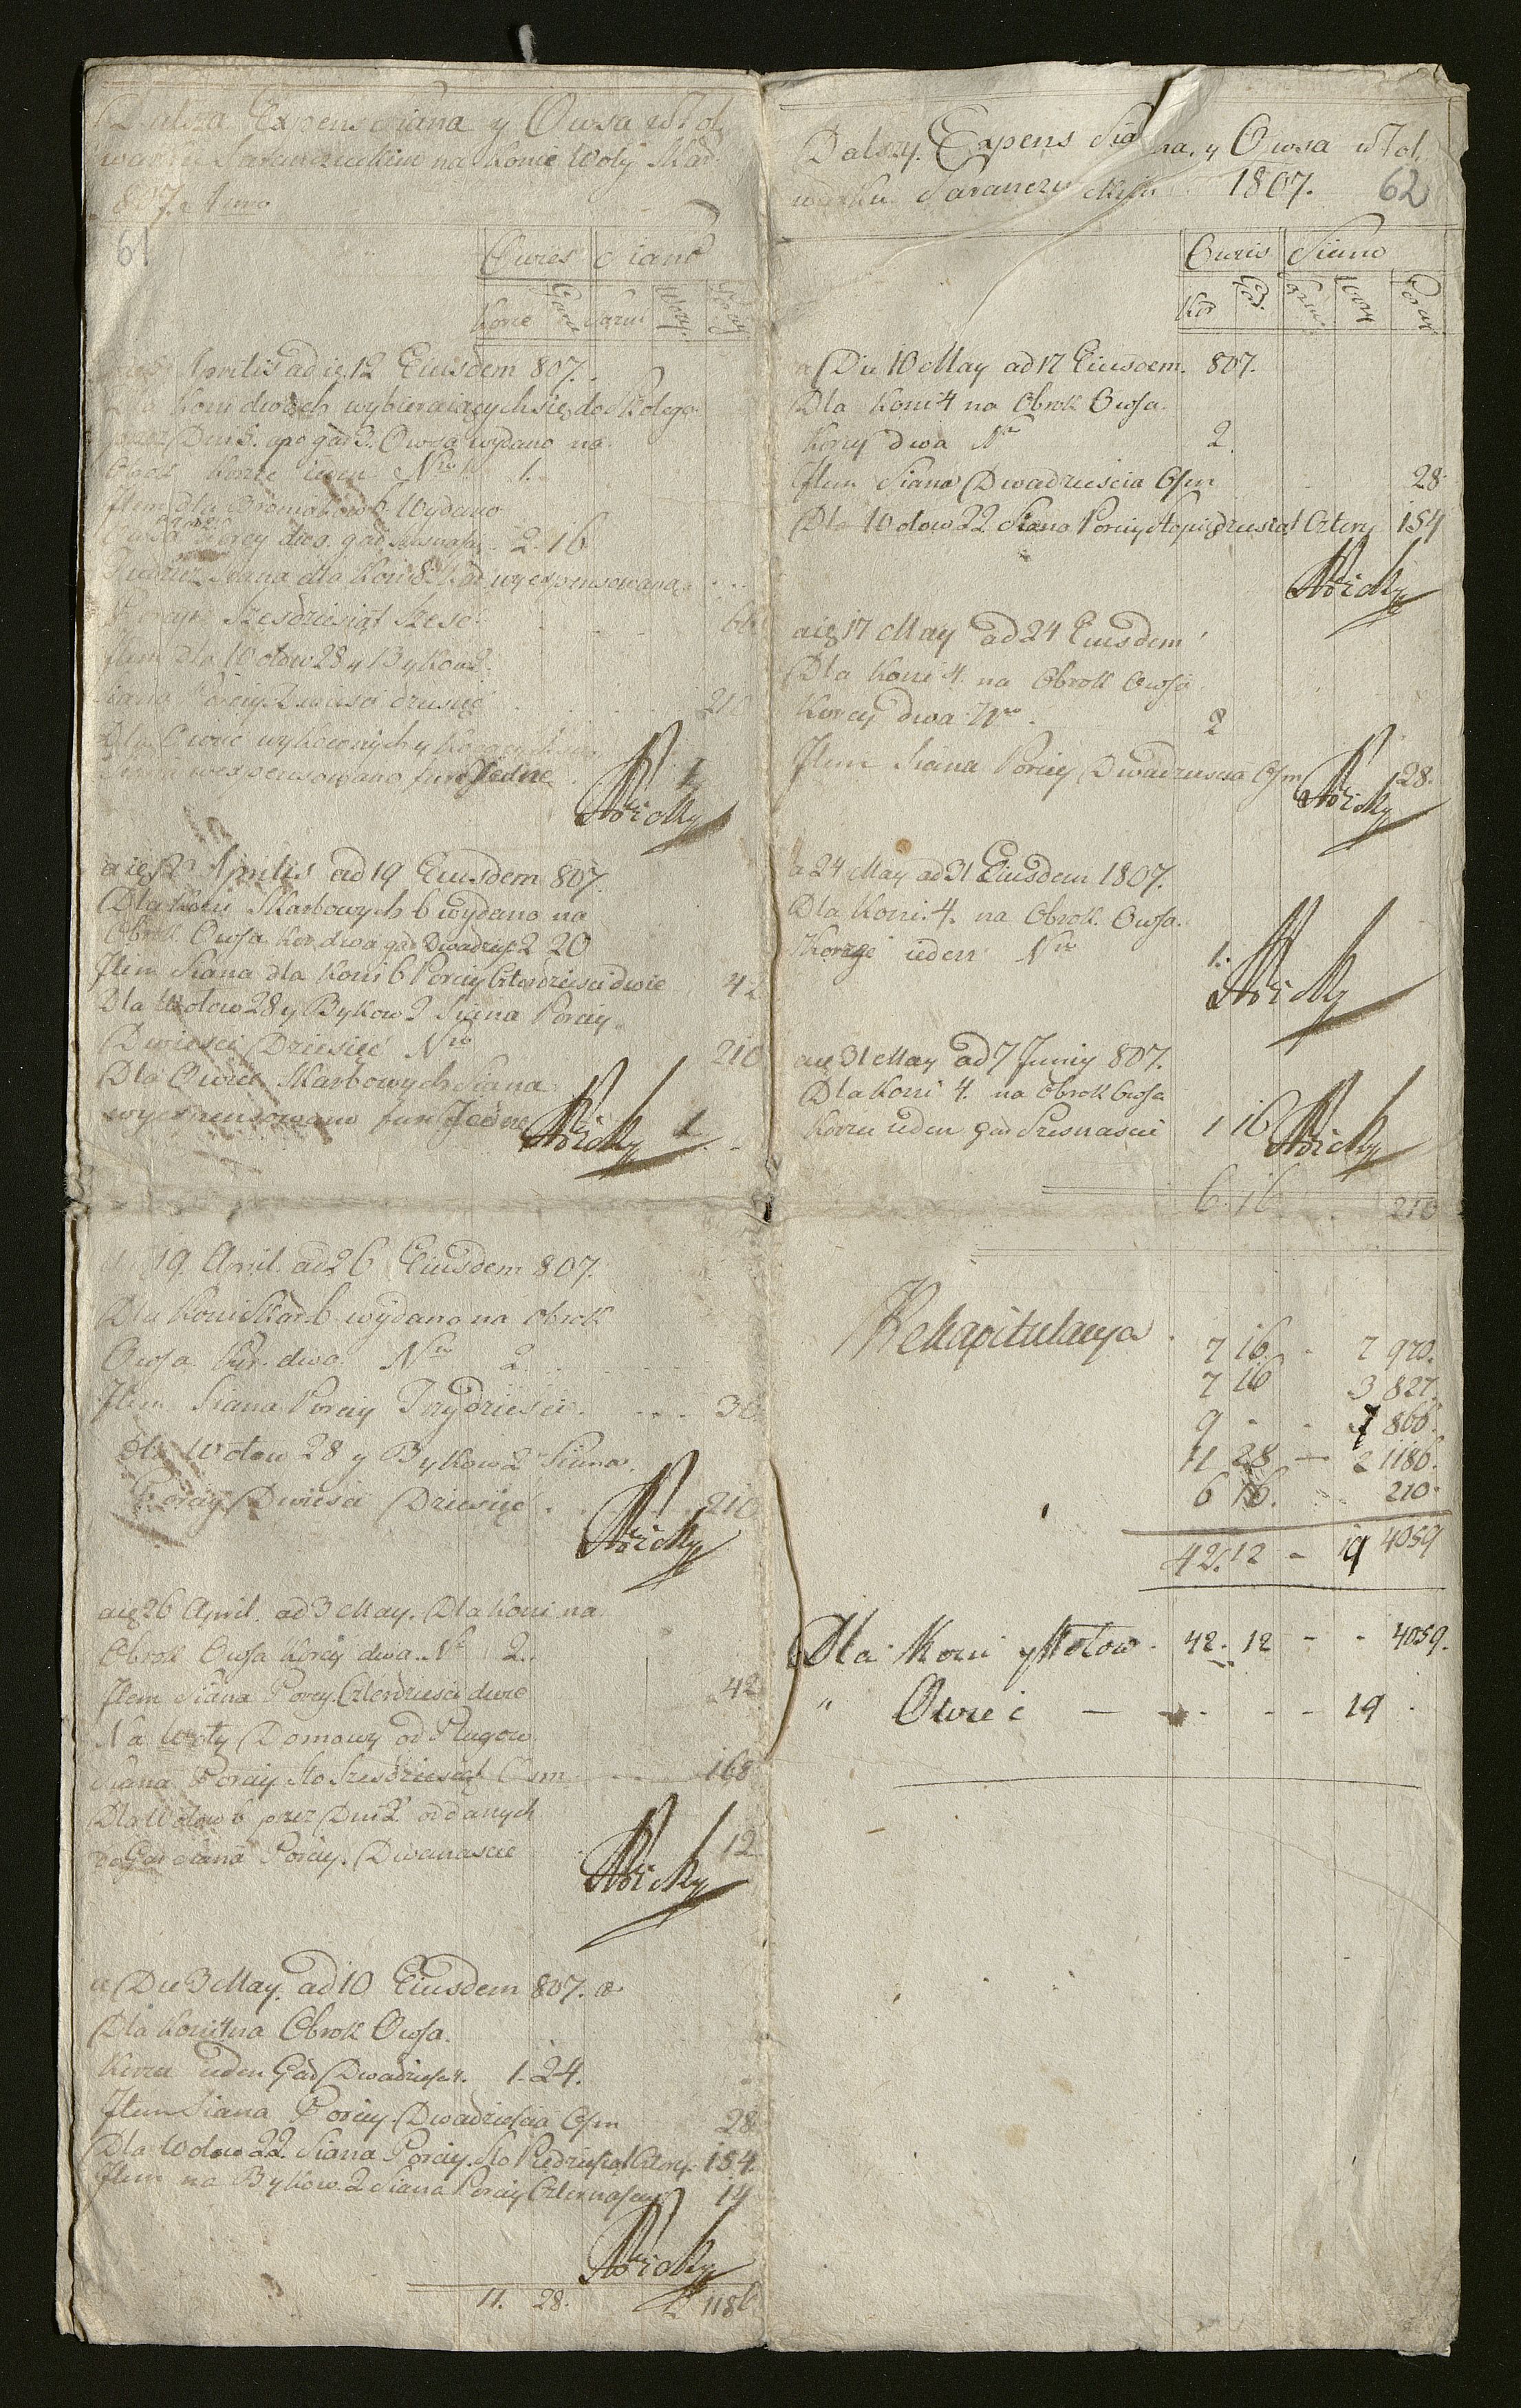 Dalsza Expens Siana y Owsa w Fol
warku Saranczuckim na Konie Woły Skar.
807. Anno
61
Owies Siano
Korce Garc Furm Wozy Porcyi
Aprilis ad ie 12 Eiusdem 807.
Dla Koni dwoch wybieraiących się do
przez Dni 5. apo gar 3. Owsa wydano na
Obrok Korzec ieden Nro 1.
Item dla 6. Wydano
Owsa Korcy dwa gar. szesnascie 2. 16
Siana dla Koni 8 Skar. wyexpensowano
Porcyi Szesdziesiąt Szesc 66
Item dla Wołow 28 y Bykow 2.
Siana Porcyi Dwiescie dziesięć 210
Dla Owiec y
Siana wexpensowano fure Jedne 1
a ie 12 Aprilis ad 19 Eiusdem 807.
Dla Koni Skarbowych 6 wydano na
Obrok Owsa Kor. dwa gar Dwadzies. 2 20
Item Siana dla Koni 6 Porcyi Czterdziesci dwie 42
Dla Wołow 28 y Bykow 2 Siana Porcyi
Dwiesci Dziesięć Nro 210
Dla Owiec Skarbowych Siana
wyexpensowano fure Jedne 1
19. April. ad 26 Eiusdem 807.
Dla Koni Skar. 6 wydano na Obrok
Owsa Kor. dwa Nro 2.
Item Siana Porcyi Trzydziesci 30
Dla Wołow 28 y Bykow 2 Siana
Porcyi Dwiesci Dziesięć 210
a ie 26 April. ad 3 May. Dla Koni na
Obrok Owsa Korcy dwa Nr 2.
Item Siana Porcy Czterdziesci dwie 42
Na Woły Domowy od Pługow
Siana Porcyi Sto Szesdziesiąt Osm 168
Dla Wołow 6 przez Dni 2 oddanych
Siana Porcyi Dwanascie 12
a Die 3 May. ad 10 Eiusdem 807.
Dla Koni 4 na Obrok Owsa.
Korzec ieden Gar Dwadzies. 4. 1. 24.
Item Siana Porcyi Dwadziescia Osm 28
Dla Wołow 22. Siana Porcyi Sto Piędziesiąt Cztery 154.
Item na Bykow 2 Siana Porcyi Czternascie 14
11. 28. 2 1186
Dalszy Expens Siana y Owsa w Fol
warku Saranczuckim 1807. 62
Owies Siano
Kor Gar. Furm Wozy Porcyi
a Die 10 May ad 17 Eiusdem. 807.
Dla Koni 4 na Obrok Owsa
Korcy dwa Nro 2
Item Siana Dwadziescia Osm 28
Dla Wołow 22 Siana Porcyi Stopiędziesiąt Cztery 154
a ie 17 May ad 24 Eiusdem
Dla Koni 4. na Obrok Owsa
Korcy dwa Nro. 2
Item Siana Porcyi Dwadziescia Osm 28.
a 24 May ad 31 Eiusdem 1807.
Dla Koni. 4. na Obrok Owsa.
Korzec ieden Nro 1.
a ie 31 May ad 7 Juniy 807.
Dla Koni 4. na Obrok Owsa
Korzec ieden gar Szesnascie 1 16
6. 16 210
Rekapitulacya
7 16 - 7 970.
7 16 3 827.
9 - - 7 866.
11 28 - 2 1186.
6 16. 210.
42. 12 - 19 4059
Dla Koni y Wołow - 42. 12 - - 4059.
" Owiec - - - - 19